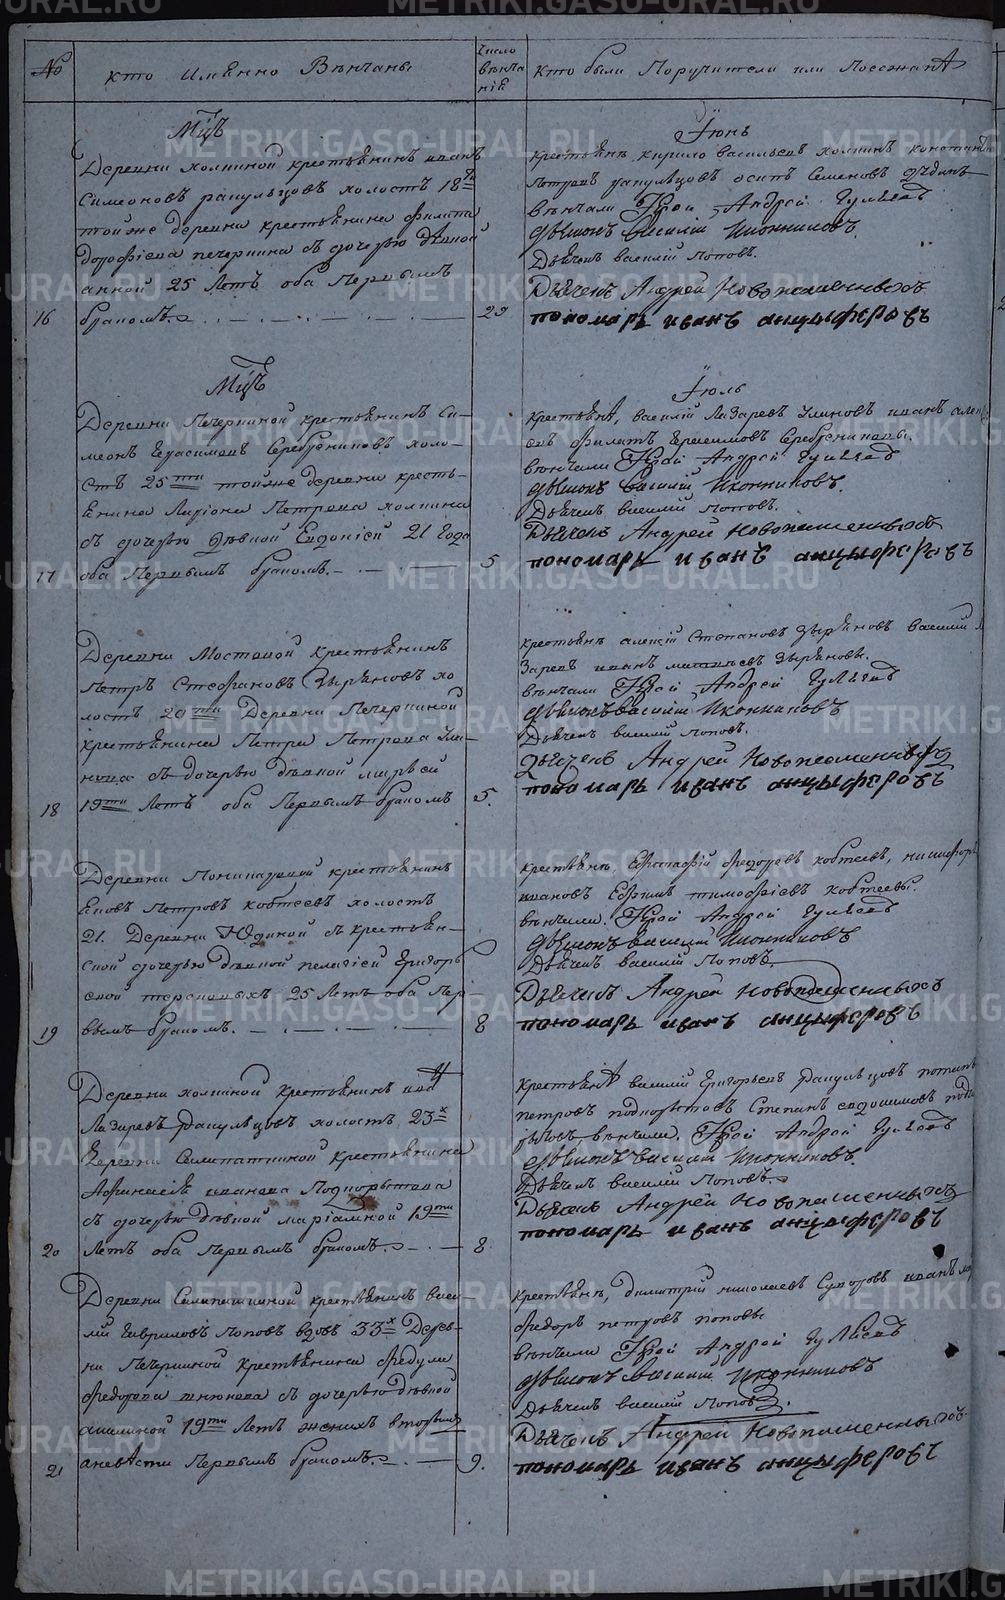 № кто Имѣнно Вѣнчаны Число вѣнчаній кто были Поручители или Поезжанѧ
Мц҃ъ Іюнь
Деревни холкиной крестьянинъ иванъ
Симеоновъ рапульцовъ холостъ 18ти
тойже деревни крестьянина филипа
дорофіева печеркина съ дочерью дѣвкой
анной 25 Летъ оба Первымъ
16 бракомъ. 29
крестьянъ кирило васильевъ холкинъ
Петровъ рапульцовъ осипъ Семеновъ
вѣнчали Іерей Андрей Гуляевъ
дьяконъ Василій Иконниковъ.
Дьячекъ василій Поповъ.
Дьячекъ Андрей Новопашенныхъ
пономарь иванъ анцыферовъ
Мц҃ъ Іюль
Деревни Печеркиной крестьянинъ Си-
меонъ Герасимовъ Серебрениковъ холо-
стъ 25ти тойже деревни кресть-
янина Ларіона Петрова холкина
съ дочерью Дѣвкой Евдокіей 21 года
17 оба Первымъ бракомъ. 5
крестьянѧ, василій Лазаревъ Улановъ иванъ
евъ филатъ Герасимовъ Серебрениковы.
вѣнчали Іерей Андрей Гуляевъ
дьяконъ Василій Иконниковъ.
Дьячекъ василій Поповъ.
Дьячекъ Андрей Новопашенныхъ
пономарь иванъ анцыферовъ
Деревни Мостовой крестьянинъ
Петръ Стефановъ Зыряновъ хо-
лостъ 20ти Деревни Печеркиной
крестьянина Петра Петрова
съ дочерью дѣвкой
18 19ти Летъ оба Первымъ бракомъ 5.
крестьянъ алексій Степановъ Зыряновъ василій Ла-
заревъ иванъ матвѣевъ Зыряновъ.
вѣнчали Іерей Андрей Гуляевъ
дьяконъ василій Иконниковъ
Дьячекъ василій Поповъ.
Дьячекъ Андрей Новопашенныхъ
пономарь иванъ анцыферовъ
Деревни крестьянинъ
Іаковъ Петровъ коптеевъ холостъ
21. Деревни Юдиной съ крестьян-
ской дочерью дѣвкой пелагіей Григорь
евой 25 Летъ оба Пер-
19 вымъ бракомъ. 8
крестьянъ, Евстафій федоровъ коптеевъ, никифоръ
ивановъ Ефимъ тимофіевъ коптеевы.
вѣнчали Іерей Андрей Гуляевъ
дьяконъ василій Иконниковъ
Дьячекъ василій Поповъ.
Дьячекъ Андрей Новопашенныхъ
пономарь иванъ анцыферовъ
Деревни холкиной крестьянинъ
Лазаревъ рапульцовъ холостъ 23х
деревни крестьянина
Афанасія иванова Подкорытова
съ дочерью дѣвкой маріамной 19ти
20 Летъ оба Первымъ бракомъ. 8
крестьянѧ василій Григорьевъ рапульцовъ потапъ
петровъ подкорытовъ Степанъ евдокимовъ
вѣнчали. Іерей Андрей Гуляевъ
дьяконъ василій Иконниковъ.
Дьячекъ василій Поповъ.
Дьячекъ Андрей Новопашенныхъ
пономарь иванъ анцыферовъ
Деревни крестьянинъ васи-
лій Гавриловъ Поповъ вдовъ 33х Дерев-
ни Печеркиной крестьянина Федула
Федорова съ дочерью дѣвкой
акилиной 19ти Летъ женихъ вторымъ
21 аневѣсти Первымъ бракомъ. 9.
крестьянъ, димитрій николаевъ иванъ
федоръ петровъ поповы
вѣнчали Іерей Андрей Гуляевъ
дьяконъ василій Иконниковъ
Дьячекъ василій Поповъ.
Дьячекъ Андрей Новопашенныхъ
пономарь иванъ анцыферовъ
METRIKI.GASO-URAL.RU